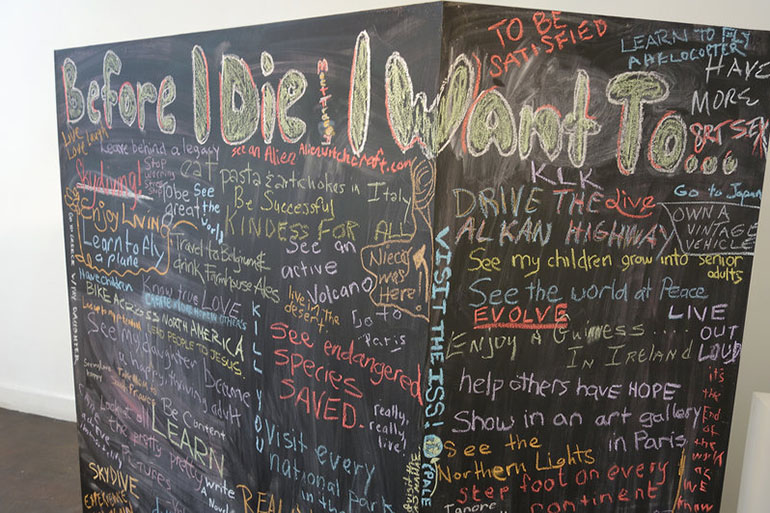 Before I Die I Want To...
TO BE
SATISFIED
LEARN TO FLY
A HELOCOPTER
HAVE
MORE
Live
Love Laugh
Leave behind a legacy
see an Alien
Alienwitchcraft.com
Stop
worrying
eat
pasta & artichokes in Italy
To be
great
See
the
world
Be Successful
KINDESS FOR ALL
Enjoy LIVIN
Learn to fly
a plane
Travel to Belgium &
drink Farmhouse Ales
See an
active
Volcano
Niecy
was
Here!
Have children
Know true LOVE
live in the
desert
Go to
Paris
BIKE ACROSS NORTH AMERICA
LEAD PEOPLE TO JESUS
See my daughter become
a happy, thriving adult
KILL YOU
See endangered
SPECIES
SAVED.
really,
really,
live!
Be Content
LEARN
Visit every
national park
in the
write
A Novel
SKYDIVE
EXPERIENCE
VISIT THE ISS!
KLK
Go to Japan
DRIVE THE
ALKAN HIGHWAY
Live
OWN A
VINTAGE
VEHICLE
See my children grow into senior
adults
See the world at Peace
EVOLVE
LIVE
OUT
LOUD
ENJOY A GUINESS...
IN IRELAND
help others have HOPE
it's
the
End
of
the
world
Show in an art gallery
in Paris
See the
Northern Lights
step foot on every
continent
Ignore
know